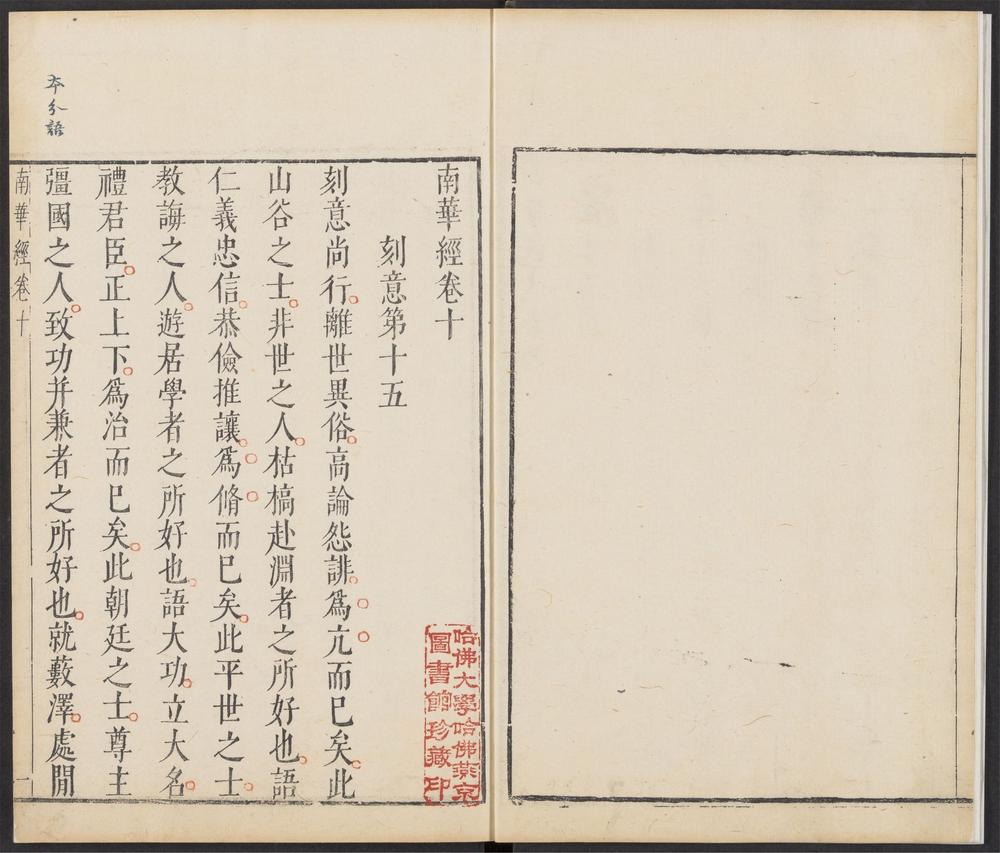 南華經卷十
刻意第十五
刻意尚行離世異俗高論怨誹爲亢而巳矣此
山谷之士非世之人枯槁赴淵者之所好也語
仁義忠信恭儉推讓爲脩而巳矣此平世之士
教誨之人遊居學者之所好也語大功立大名
禮君臣正上下爲治而巳矣此朝廷之士尊主
彊國之人致功并兼者之所好也就藪澤處閒
南華經卷十
一
本分語
哈佛大學哈佛燕京
圖書館珍藏印